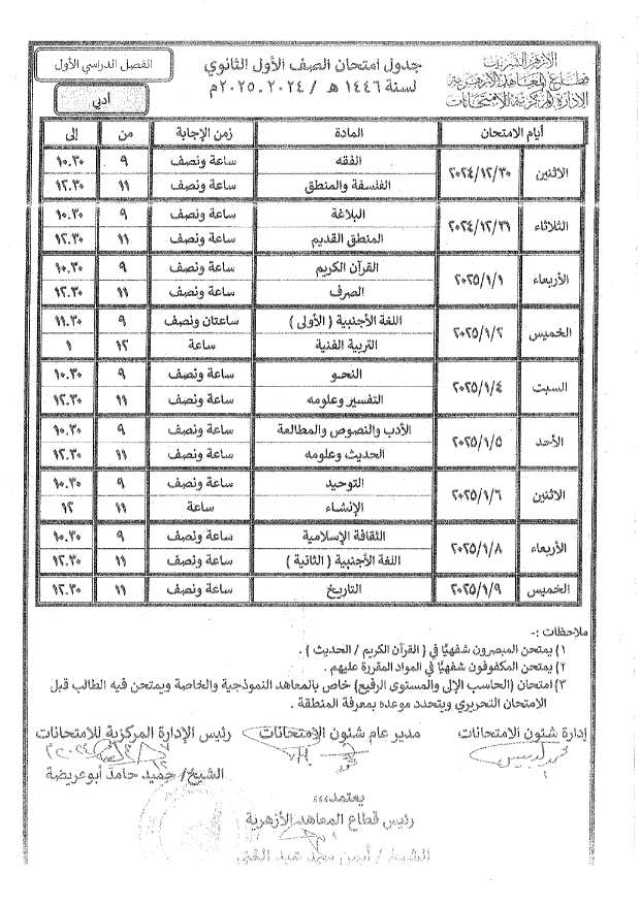 الأزهر الشريف
قطاع المعاهد الأزهرية
الإدارة المركزية للامتحانات
جدول امتحان الصف الأول الثانوي
لسنة ١٤٤٦ هـ / ٢٠٢٤ـ٢٠٢٥م
الفصل الدراسي الأول
أدبي
أيام الامتحان المادة زمن الإجابة من إلى
الاثنين ٢٠٢٤/١٢/٣٠ الفقه ساعة ونصف ٩ ١٠.٣٠
الفلسفة والمنطق ساعة ونصف ١١ ١٢.٣٠
الثلاثاء ٢٠٢٤/١٢/٣١ البلاغة ساعة ونصف ٩ ١٠.٣٠
المنطق القديم ساعة ونصف ١١ ١٢.٣٠
الأربعاء ٢٠٢٥/١/١ القرآن الكريم ساعة ونصف ٩ ١٠.٣٠
الصرف ساعة ونصف ١١ ١٢.٣٠
الخميس ٢٠٢٥/١/٢ اللغة الأجنبية ( الأولى ) ساعتان ونصف ٩ ١١.٣٠
التربية الفنية ساعة ١٢ ١
السبت ٢٠٢٥/١/٤ النحـو ساعة ونصف ٩ ١٠.٣٠
التفسير وعلومه ساعة ونصف ١١ ١٢.٣٠
الأحد ٢٠٢٥/١/٥ الأدب والنصوص والمطالعة ساعة ونصف ٩ ١٠.٣٠
الحديث وعلومه ساعة ونصف ١١ ١٢.٣٠
الاثنين ٢٠٢٥/١/٦ التوحيد ساعة ونصف ٩ ١٠.٣٠
الإنشاء ساعة ١١ ١٢
الأربعاء ٢٠٢٥/١/٨ الثقافة الإسلامية ساعة ونصف ٩ ١٠.٣٠
اللغة الأجنبية ( الثانية ) ساعة ونصف ١١ ١٢.٣٠
الخميس ٢٠٢٥/١/٩ التاريخ ساعة ونصف ١١ ١٢.٣٠
ملاحظات :-
١) يمتحن المبصرون شفهيًا في ( القرآن الكريم / الحديث ) .
٢) يمتحن المكفوفون شفهيًا في المواد المقررة عليهم .
٣) امتحان (الحاسب الإلى والمستوى الرفيع) خاص بالمعاهد النموذجية والخاصة ويمتحن فيه الطالب قبل
الامتحان التحريري ويتحدد موعده بمعرفة المنطقة .
إدارة شئون الامتحانات مدير عام شئون الامتحانات رئيس الإدارة المركزية للامتحانات
الشيخ/ حميد حامد أبوعريضة
يعتمد،،،
رئيس قطاع المعاهد الأزهرية
الشيخ / أيمن محمد عبد الغني